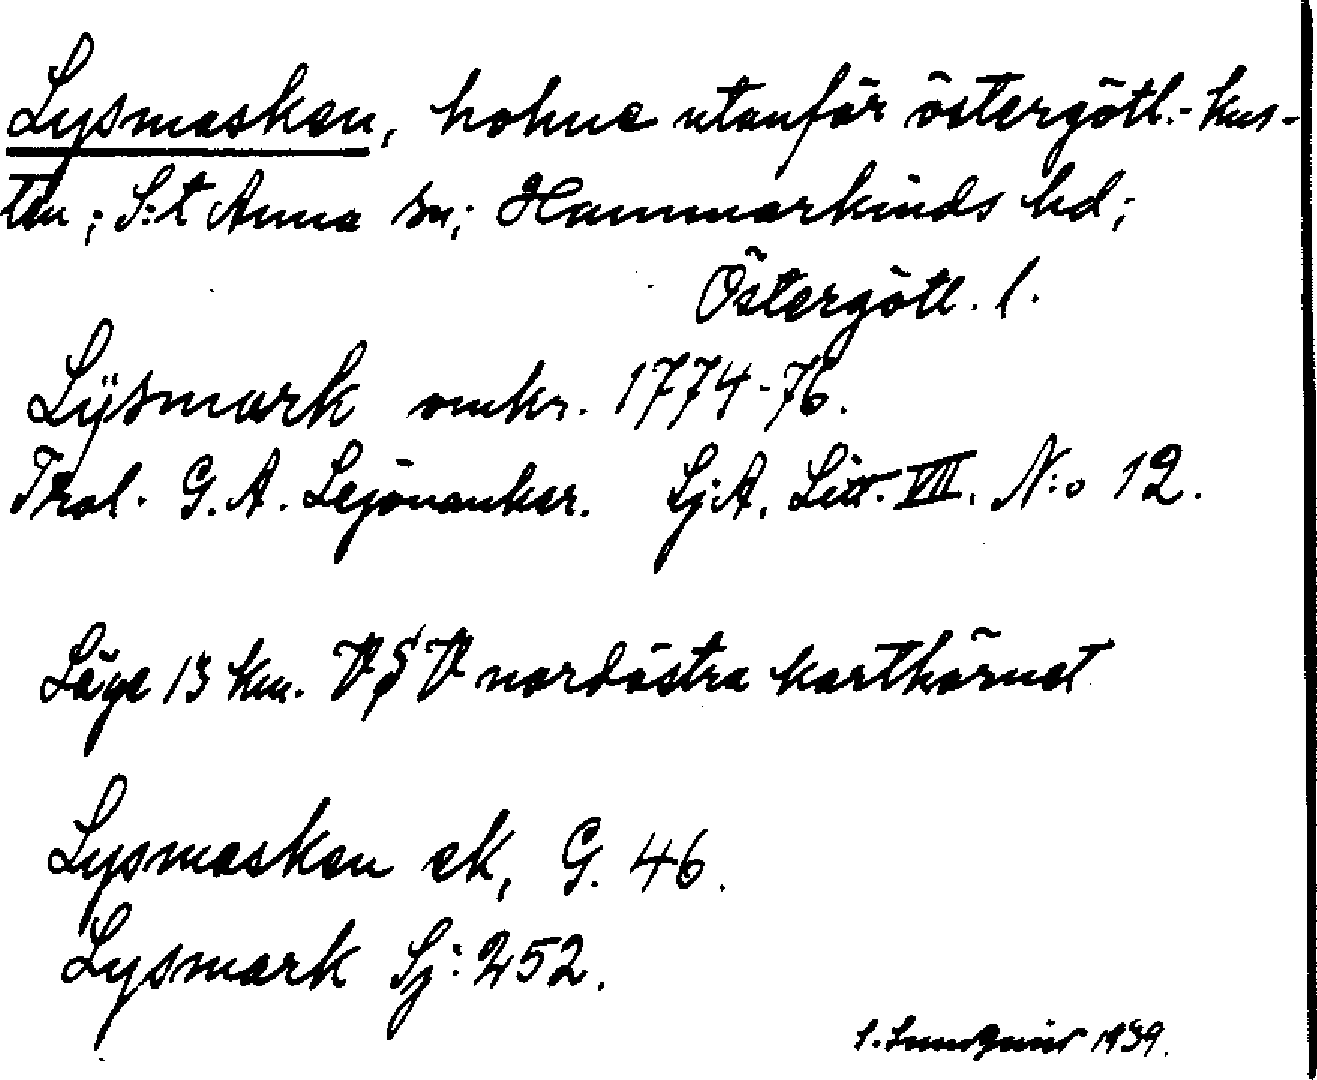 Lysmasken, holme utanför östergötl.-kus-
ten; S:t Anna sn; Hammarkinds hd;
Östergötl. l.
Lÿsmark omkr. 1774-76.
Trol. G. A. Lejonankar. Sj:A. Litt. VII. N:o 12.
Läge 13 km. V§V nordöstra karthörnet
Lysmasken ek, G. 46.
Lysmark Sj: 252.
1939.